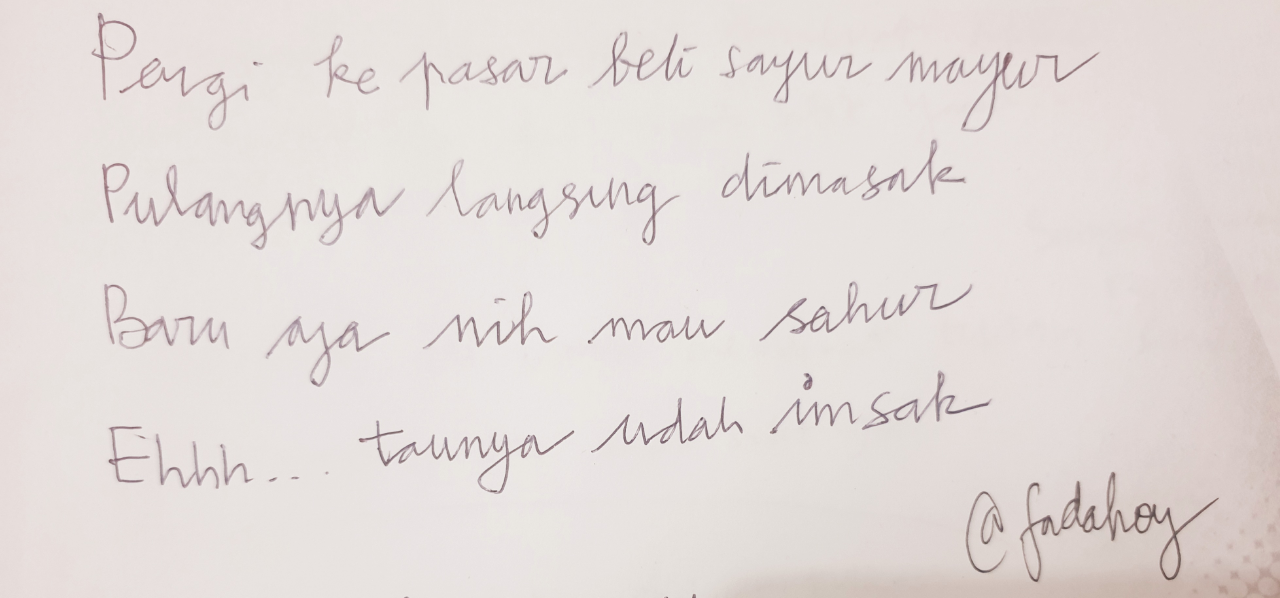 Pergi ke pasar beli sayur mayur
Pulangnya langsung dimasak
Baru aja nih mau sahur
Ehhh... taunya udah imsak
@fadahoy